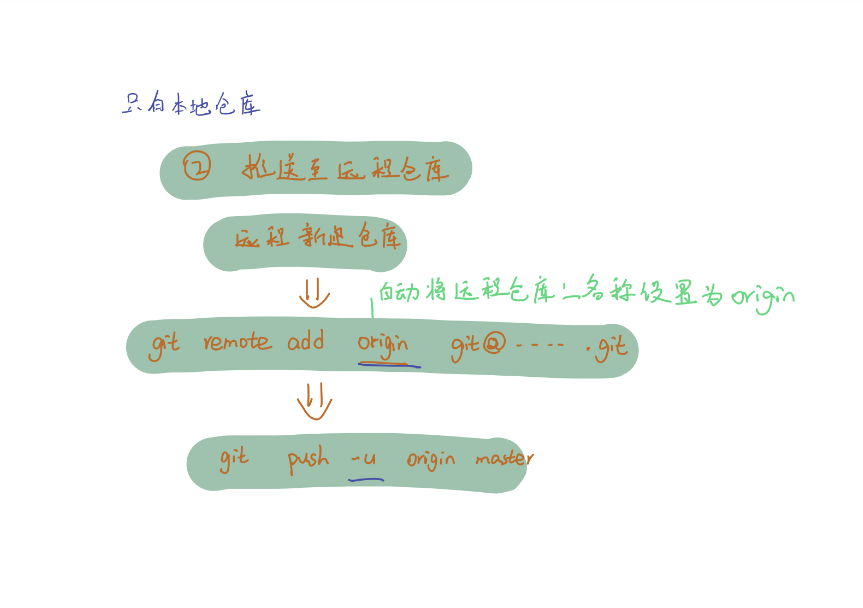 只有本地仓库
② 推送至远程仓库
远程新建仓库
自动将远程仓库之名称设置为origin
git remote add origin git@---- .git
git push -u origin master